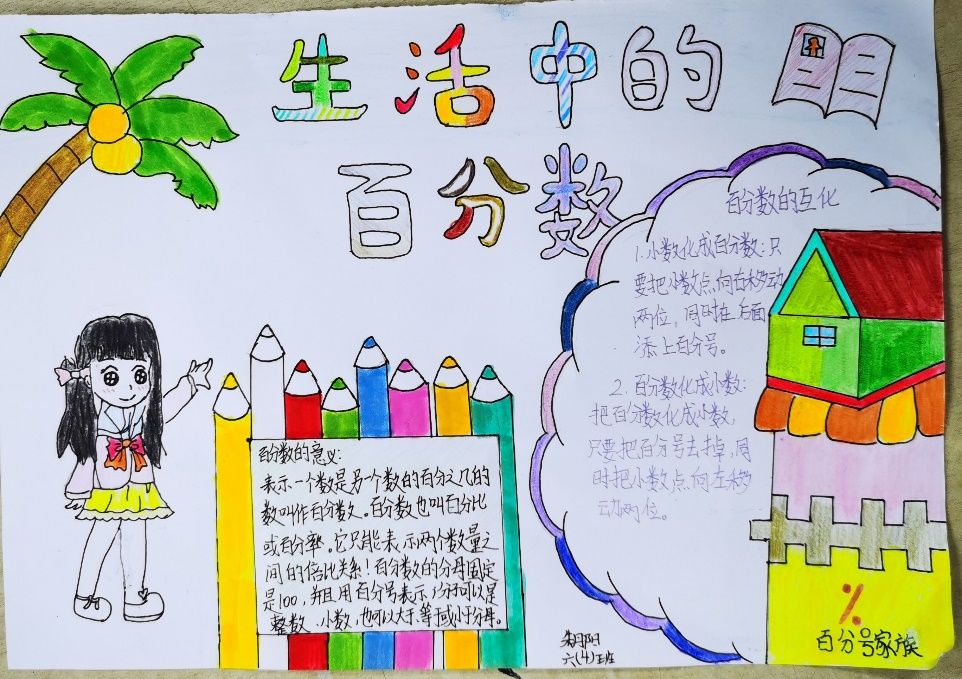 生活中的
百分数
百分数的意义:
表示一个数是另一个数的百分之几的
数叫作百分数。百分数也叫百分比
或百分率。它只能表示两个数量之
间的倍比关系!百分数的分母固定
是100,并且用百分号表示,分子可以是
整数、小数,也可以大于、等于或小于分母。
百分数的互化
1.小数化成百分数:只
要把小数点向右移动
两位,同时在后面
添上百分号。
2.百分数化成小数:
把百分数化成小数,
只要把百分号去掉,同
时把小数点向左移
动两位。
%
百分号家族
阳
六(4)班